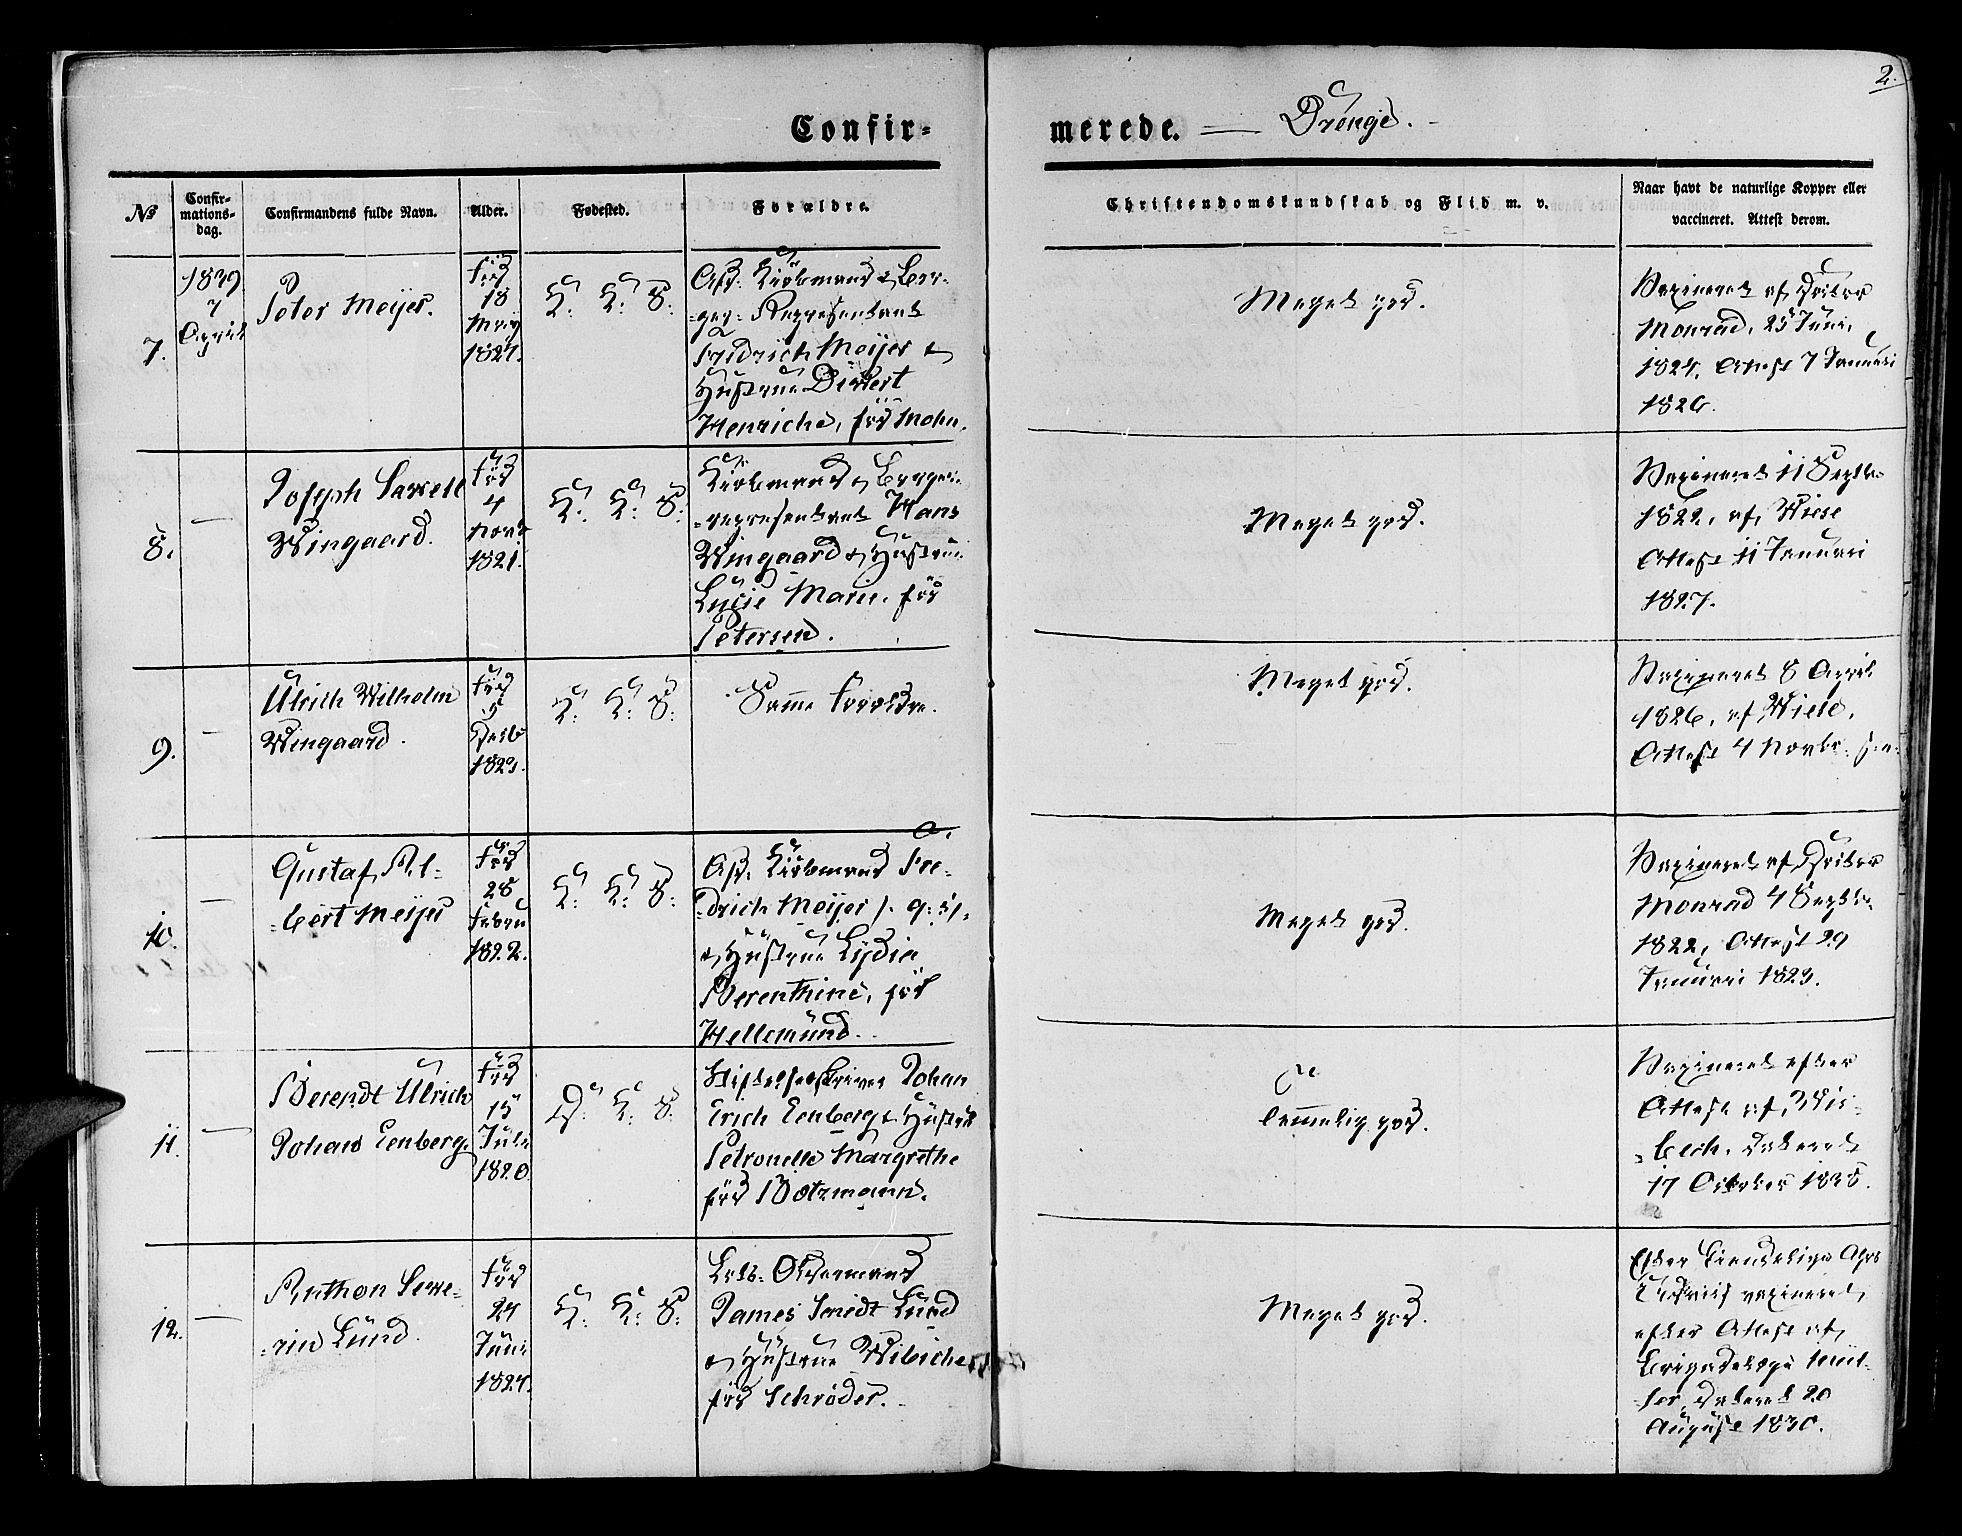 2.
Confir-
merede. — Drenge.
No
Confir-
mations-
dag.
Confirmandens fulde Navn.
Alder.
Fødested.
Forældre.
Christendomskundskab og Flid m. v.
Naar havt de naturlige Kopper eller
vaccineret. Attest derom.
7.
1839
7
April
Peter Meijer.
Fød
18
May
K: K: S:
Afd: Kiøbmand & Bor-
ger-Repræsentant
Fridrich Meijer &
Hustrue
Henriche, fød Mohn.
Meget god.
Vaxineret af Doctor
Monrad, 25 Juni
1824. Attest 7 Januari
1826.
8.
—
Joseph
Wingaard.
Fød
4
Novb
1821.
K: K: S:
Kiøbmand & Borger-
repræsentant Hans
Wingaard & Hustrue
Lucie Marie, fød
Petersen.
Meget god.
Vaxineret 11 Septbr
1822, af Wiese
Attest 11 Januari
1827.
9.
—
Ulrich Wilhelm
Wingaard.
Fød
1823.
K: K: S:
Samme Forældre.
Meget god.
Vaxineret 8 April
1826, af Wiese,
Attest 4 Novbr
10.
—
Gustaf Al-
bert Meijer
Fød
28
Februar
1822.
K: K: S:
Afd: Kiøbmand Fre-
drich Meijer
& Hustrue Lydia
Berenthine, fød
Hellemünd.
Meget god.
Vaxineret af Doctor
Monrad 4 Septbr
1822, Attest 29
Januari 1823.
11.
—
Berendt Ulrich
Johan Eenberg.
Fød
15
Juli
1820
D: K: S:
Stiftelsesskriver Johan
Erich Eenberg & Hustrue
Petronelle Margrethe
fød Botzmann.
Temmelig god.
Vaxineret efter
Attest af Wis-
bech, dateret
17 October 1838.
12.
—
Anthon Seve-
rin Lund.
Fød
24
Juni
1824.
K: K: S:
Lods-Oldermand
James Smidt Lund
& Hustrue Wibiche
fød Schrøder.
Meget god.
Efter
Udviis vaxineret,
efter Attest af
Brigadelæge
dateret 20
August 1830.